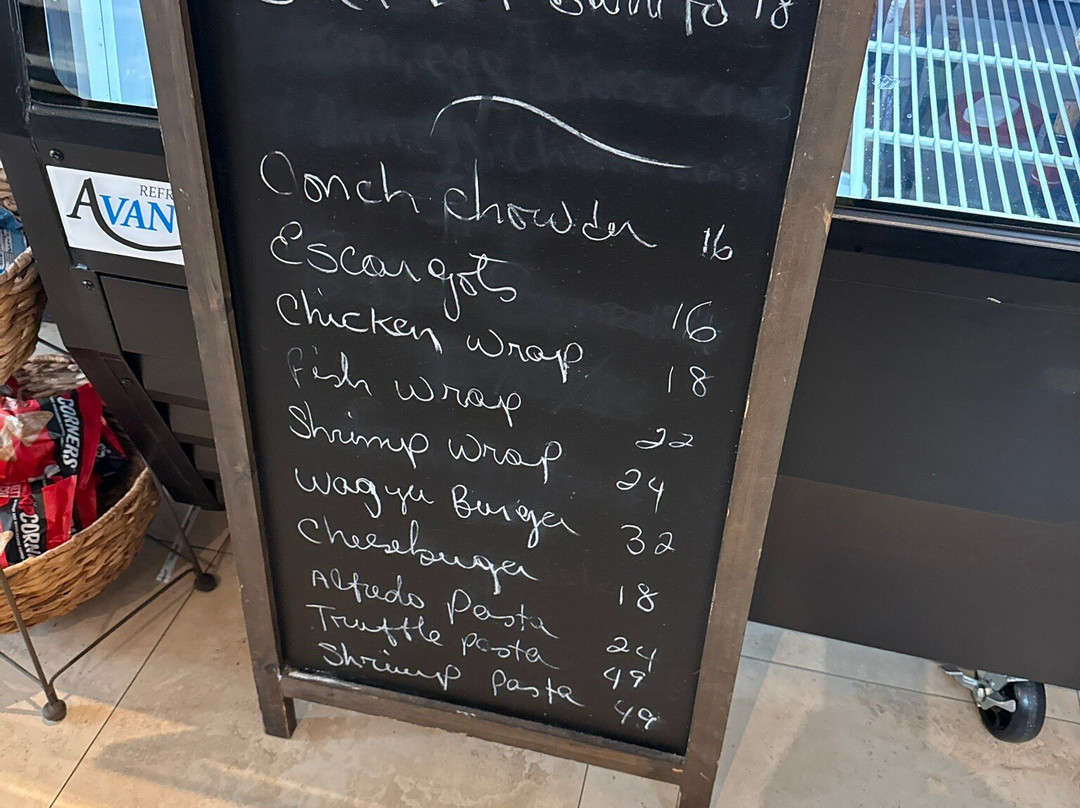 Burrito 18
Conch chowder 16
Escargots 16
Chicken wrap 18
Fish wrap 22
Shrimp wrap 24
Wagyu Burger 32
Cheeseburger 18
Alfredo Pasta 24
Truffle pasta 49
Shrimp Pasta 49
REFR
AVAN
CORNERS
CORN